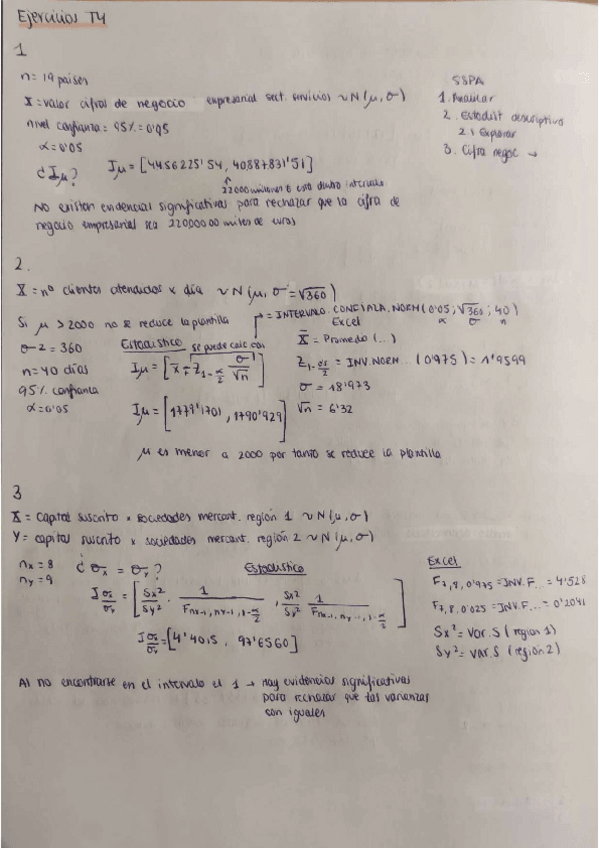 Ejercicios T4
1
n = 19 países
X = valor cifras de negocio empresarial sect. servicios ~ N(μ, σ)
nivel confianza = 95% = 0'95
α = 0'05
¿ Iμ ?
Iμ = [4456225'54, 40887831'51]
22000 millones € está dentro intervalo
No existen evidencias significativas para rechazar que la cifra de
negocio empresarial sea 22000000 miles de euros
SSPA
1. Analizar
2. Estadíst descriptivo
2.1 Explorar
3. Cifra negoc →
2.
X = nº clientes atendidos x día ~ N(μ, σ = √360)
Si μ > 2000 no se reduce la plantilla
σ^2 = 360
n = 40 días
95% confianza
α = 0'05
Estadístico se puede calc con
= INTERVALO.CONFIANZA.NORM(0'05; √360; 40)
α σ n
Iμ = [x̄ ∓ Z1-α/2 σ/√n]
Iμ = [1779'1701, 1790'929]
Excel
X̄ = Promedio (...)
Z1-α/2 = INV.NORM... (0'975) = 1'9599
σ = 18'973
√n = 6'32
μ es menor a 2000 por tanto se reduce la plantilla
3
X = capital suscrito x sociedades mercant. región 1 ~ N(μ, σ)
Y = capital suscrito x sociedades mercant. región 2 ~ N(μ, σ)
nx = 8
ny = 9
¿ σx = σy ?
Estadístico
I σx/σy = [Sx²/Sy² · 1/Fnx-1, ny-1, 1-α/2 , Sx²/Sy² 1/Fnx-1, ny-1, 1-α/2]
I σx/σy = [4'4015, 97'6560]
Excel
F7,8,0'975 = INV.F... = 4'528
F7,8,0'025 = INV.F... = 0'2041
Sx² = Var.S (región 1)
Sy² = Var.S (región 2)
Al no encontrarse en el intervalo el 1 → hay evidencias significativas
para rechazar que las varianzas
son iguales